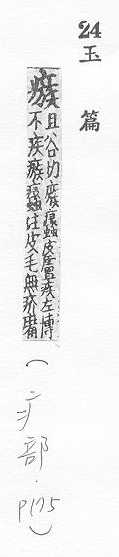 24
玉篇
瘯
且谷切瘯蠡皮膚疾左傳
不疾瘯蠡注皮毛無疥癬
(疒部.P175)